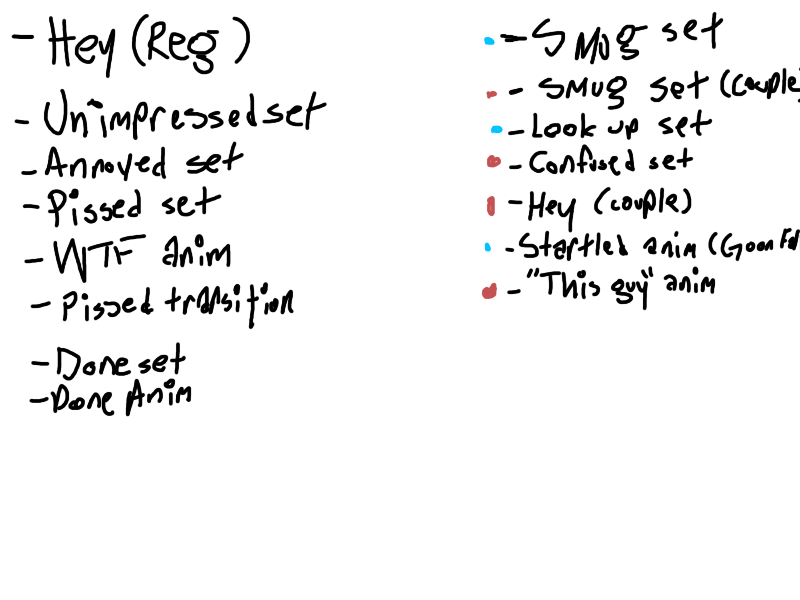 - Hey (Reg)
- Unimpressed set
- Annoyed set
- Pissed set
- WTF anim
- Pissed transition
- Done set
- Done Anim
- Smug set
- Smug set (couple
- Look up set
- Confused set
- Hey (couple)
- Startled anim (Goon
- "This guy" anim